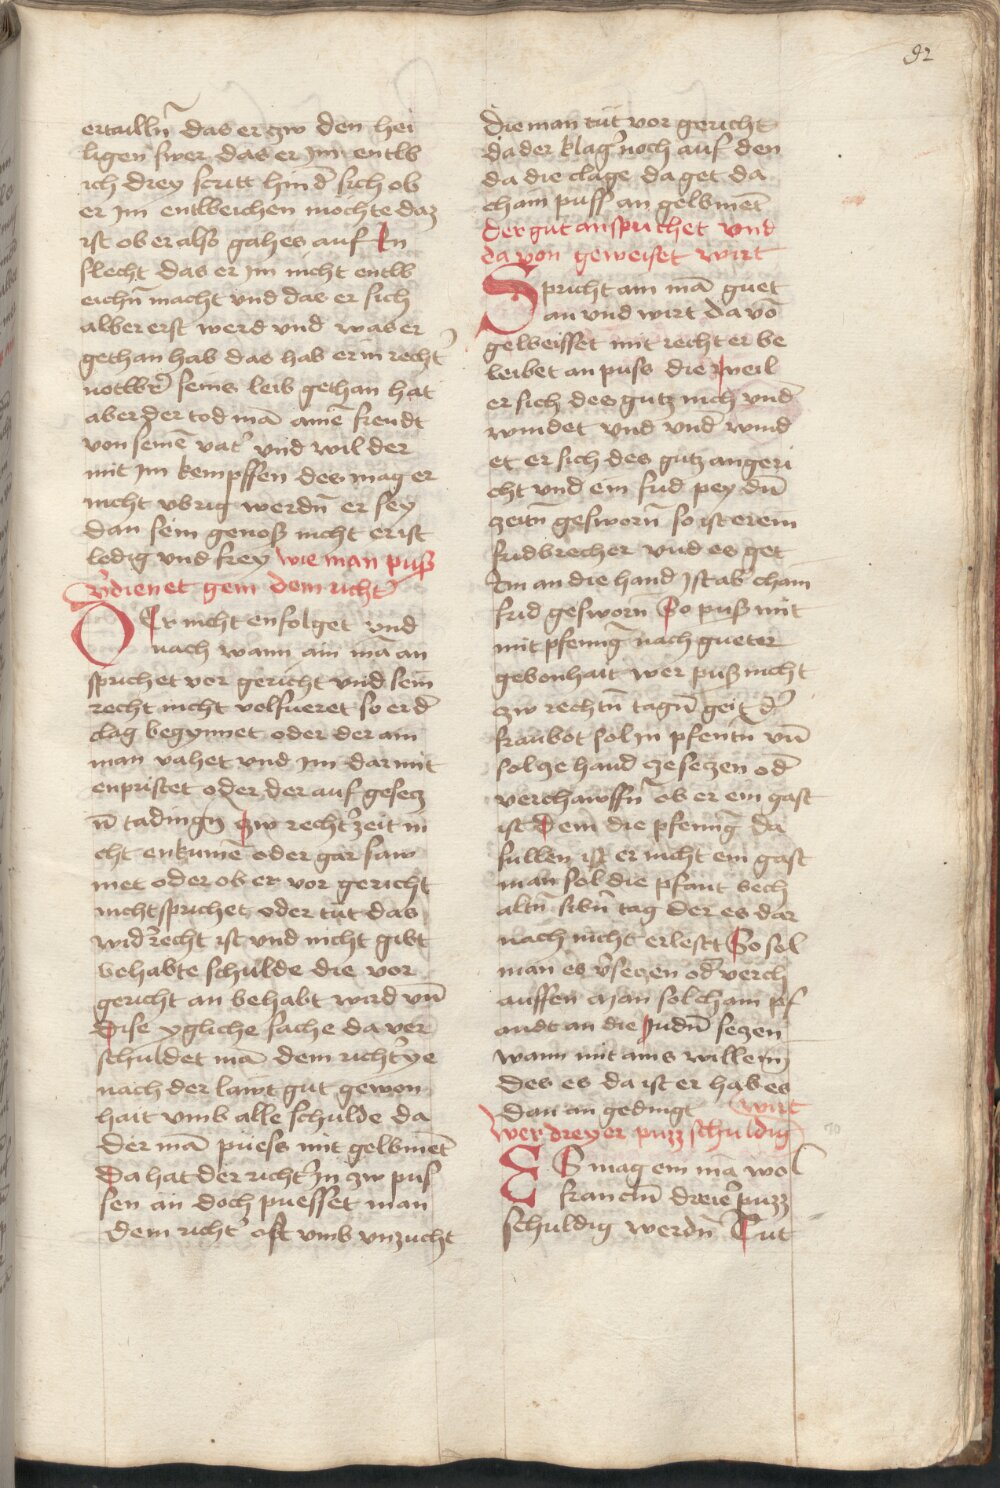 92
ertailln̄ das er zw den hei
ligen swer das er Im entw
ich drey scritt hind̄ sich ob
er Im entweichen mochte daz
ist ob er also gahes auf In
slecht das er im nicht entw
eichn̄ macht vnd das er sich
alber erst werd vnd was er
gethan hab das hab er in recht̄
notwer̄ seins leib gethan hat
aber der tod mā ainē freudt
von seinē vat̄ vnd wil der
mit Im kempffen des mag er
nicht vbrig werdn̄ er sey
dan sein genoß nicht er ist
ledig vnd frey wie man puß
v̄dienet gein dem richt̄
Er nicht enfolget vnd
nach wann ain mā an
sprichet vor gericht vnd sein
recht nicht volfueret so er d̄
clag begynnet oder der ain
man vahet vnd Im darmit
enpristet oder der auf gesecz
n̄ tadingn̄ zw recht̄ zeit ni
cht enkumē oder gar saw
met oder ob er vor gericht
nicht sprichet oder tut das
wid̄ recht ist vnd nicht gibt
behabte schulde die vor
gericht an behabt wird vn̄
Dise ygliche sache da ver
schuldet mā dem richt̄ ye
nach der lawt gut gewon
hait vmb alle schulde da
der mā puess mit gelbinet
Da hat der richt̄ In zw puß
sen an doch puesset man
dem richt̄ oft vmb vnzucht
die man tut vor gericht
da der klaḡ noch auf den
da die clage da get da
cham puss an gelbinet
der gut an sprichet vnd
da von geweiset wirt
Spricht ain mā guet
an vnd wirt da vō
geweisset mit recht er be
leibet an puss die weil
er sich des gutz nich vnd̄
windet vnd vnd̄ wind
et er sich des gutz an geri
cht vnd ein frid pey dn̄
zeitn̄ gesworn̄ so ist er ein
fridbrecher vnd es get
Im an die hand Ist ab̄ cham
frid gesworn̄ So puß mit
mit pfenniḡ nach gueter
gebonhait wer puß nicht
zw rechtn̄ tagn̄ geit d̄
fraubot sol in pfentn̄ vn̄
sol ze hand ze seczen od̄
verchawffn̄ ob er ein gast
ist Dem die pfenniḡ da
sullen ist er nicht ein gast
man sol die pfant bech
altn̄ sibn̄ tag der es dar
nach nicht erlest So sol
man es v̄seczen od̄ verch
auffen Man sol cham pf
andt an die Judn̄ seczen
wann mit ains willenn
des es da ist er hab es
dan an gedingt wirt
Wer dreyer puzz schuldig
ES mag ein mā wol
fran ein̄ dreie puzz
schuldig werdn̄ Tut